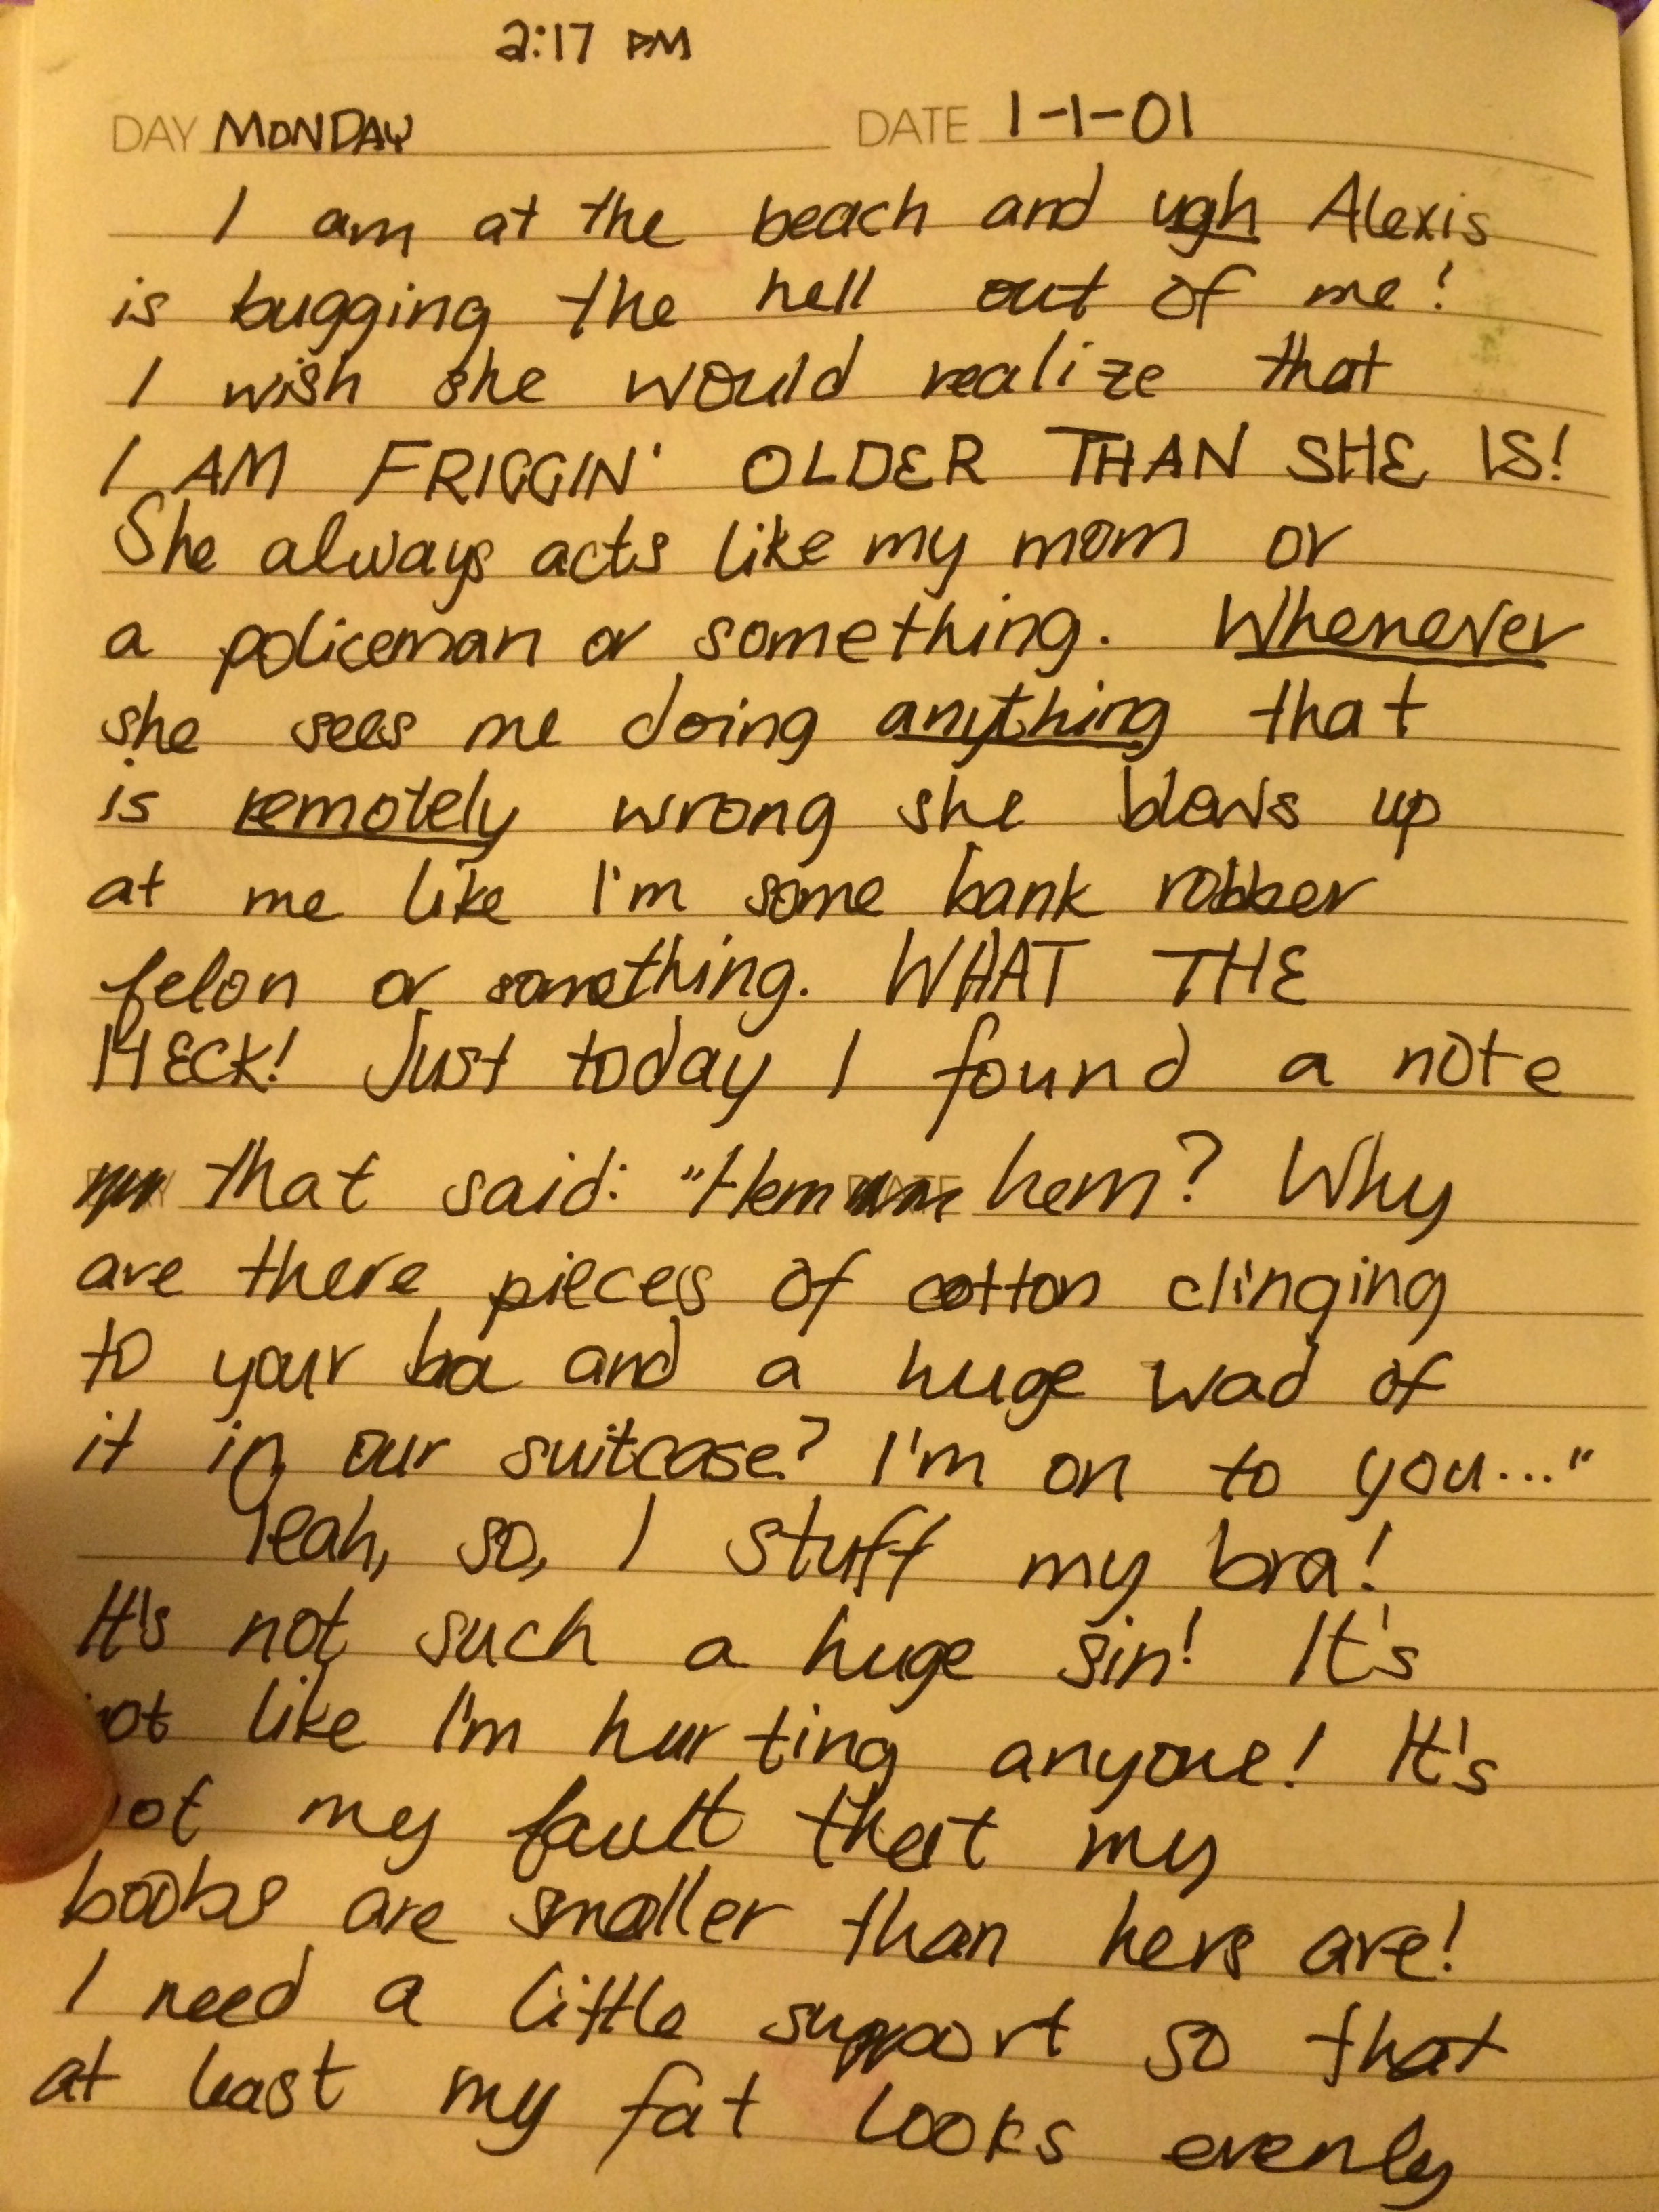 2:17 PM
DAY MONDAY DATE 1-1-01
I am at the beach and ugh Alexis
is bugging the hell out of me!
I wish she would realize that
I AM FRIGGIN' OLDER THAN SHE IS!
She always acts like my mom or
a policeman or something. Whenever
she sees me doing anything that
is remotely wrong she blows up
at me like I'm some bank robber
felon or something. WHAT THE
HECK! Just today I found a note
that said: "Hem hem? Why
are there pieces of cotton clinging
to your ba and a huge wad of
it in our suitcase? I'm on to you..."
Yeah, so, I stuff my bra!
It's not such a huge sin! It's
not like I'm hurting anyone! It's
not my fault that my
boobs are smaller than hers are!
I need a little support so that
at least my fat looks evenly